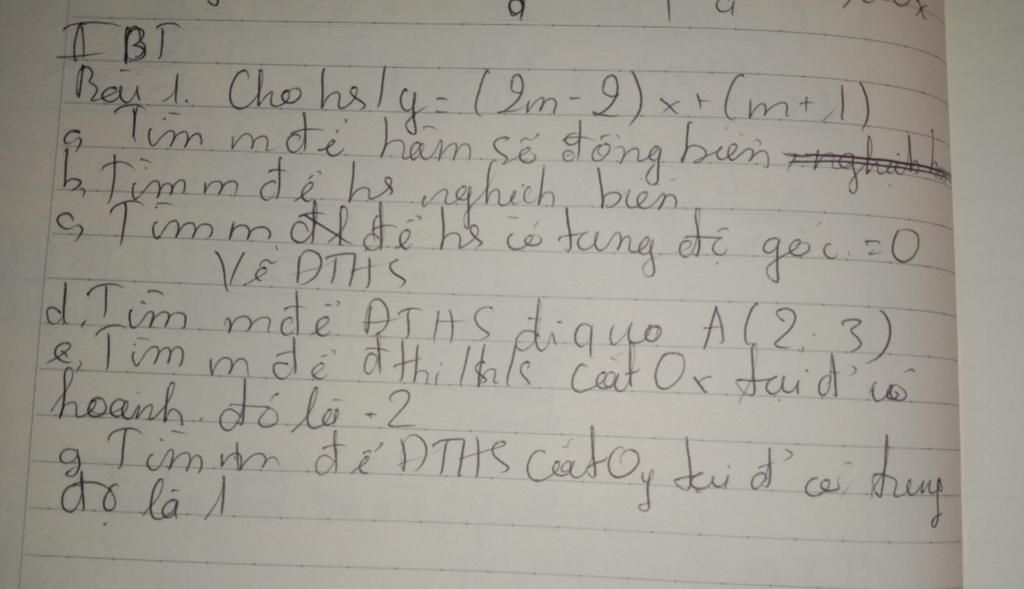 II BT
Bài 1. Cho hs / y = (2m - 2) x + (m + 1)
a, Tìm m để hàm số đồng biến
b, Tìm m để hs nghịch biến
c, Tìm m để hs có tung độ gốc = 0
Vẽ ĐTHS
d, Tìm m để ĐTHS đi qua A (2; 3)
e, Tìm m để đthị h/s cắt Ox tại đ' có
hoành độ là -2
g Tìm m để ĐTHS cắt Oy tại đ' có tung
độ là 1